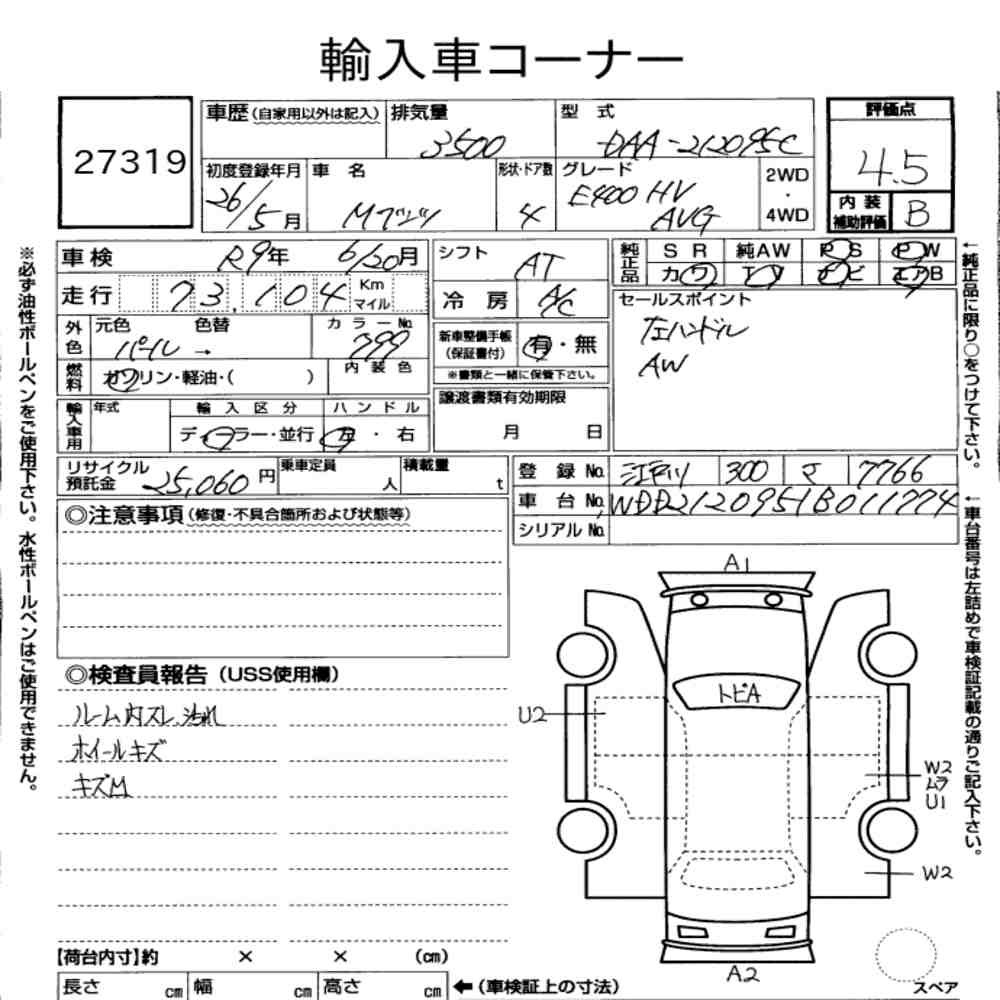 輸入車コーナー
27319
車歴(自家用以外は記入)
排気量
3500
型 式
DAA-212095C
評価点
4.5
内装補助評価
B
初度登録年月
26/5月
車 名
Mベンツ
形状・ドア数
4
グレード
E400 HV
AVG
2WD
・
4WD
車検
R9年 6/20月
シフト
AT
純正品
S R
純AW
P S
P W
カワ
T V
ナビ
エアB
走行
73,104
Km
マイル
冷 房
A/C
セールスポイント
左ハンドル
AW
外色
元色 色替
パール →
カラーNo.
799
新車整備手帳
(保証書付)
有・無
※書類と一緒に保管下さい。
燃料
ガソリン・軽油・( )
内 装 色
譲渡書類有効期限
月 日
輸入車用
年式
輸 入 区 分
ディーラー・並行
ハ ン ド ル
左 ・ 右
リサイクル
預託金
25,060円
乗車定員
人
積載量
t
登 録 No.
江戸川 300 マ 7766
車 台 No.
WDD2120951B011774
シリアル No.
◎注意事項(修復・不具合箇所および状態等)
◎検査員報告(USS使用欄)
ルーム内スレ、汚れ
ホイールキズ
キズM
A1
トビA
U2
W2
ムラ
U1
W2
A2
スペア
【荷台内寸】約 × × (cm)
長さ cm
幅 cm
高さ cm
←(車検証上の寸法)
※必ず油性ボールペンをご使用下さい。水性ボールペンはご使用できません。
←純正品に限り○をつけて下さい。
←車台番号は左詰めで車検証記載の通りご記入下さい。